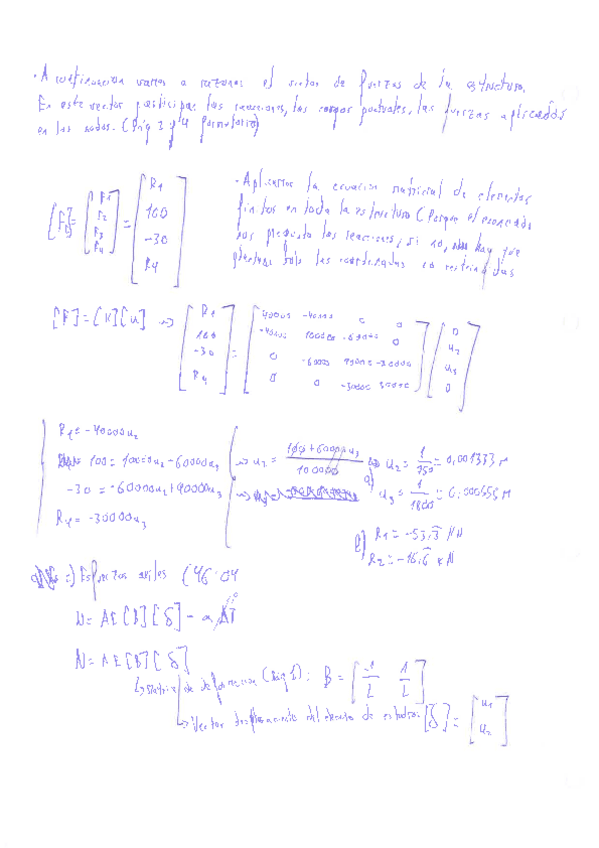 · A continuacion vamos a razonar el vector de fuerzas de la estructura.
En este vector participan las reacciones, las cargas puntuales, las fuerzas aplicadas
en los nodos. (Pág 3 y 4 formulario)
[F] = [F1 F2 F3 F4] = [R1 100 -30 R4]
· Aplicamos la ecuacion matricial de elementos
finitos en toda la estructura (Porque el enunciado
nos pregunta las reacciones, si no, hay que
plantear solo las coordenadas no restringidas
[F] = [K][u] ⇒ [R1 100 -30 R4] = [40000 -40000 0 0; -40000 100000 -60000 0; 0 -60000 90000 -30000; 0 0 -30000 30000] [0 u2 u3 0]
R1 = -40000u2
100 = 100000u2 - 60000u3
-30 = -60000u2 + 90000u3
R4 = -30000u3
⇒ u2 = (100 + 60000u3)/100000
a) u2 = 1/750 = 0,001333 m
u3 = 1/1800 = 0,000555 m
R1 = -53,3 kN
R2 = -16,6 kN
Esfuerzos axiles (46:04
N = AE[B][δ] - α ΔT
N = AE[B][δ]
↳ Matriz de deformacion (Pág 1): B = [-1/L 1/L]
↳ Vector desplazamiento del elemento de estudio: [δ] = [u1 u2]